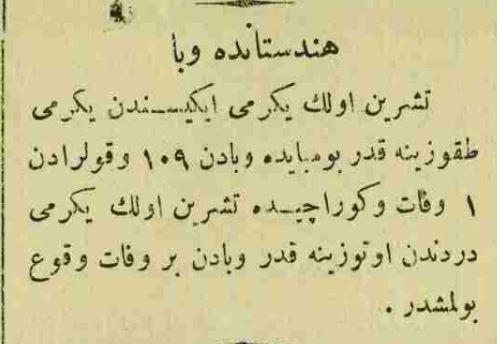 هندستانده وبا
تشرین اولك یكرمی ایكیسندن یكرمی
طقوزینه قدر بومبایده وبادن ١٠٩ وقولرادن
١ وفات وكوراچیده تشرین اولك یكرمی
دردندن اوتوزینه قدر وبادن بر وفات وقوع
بولمشدر .